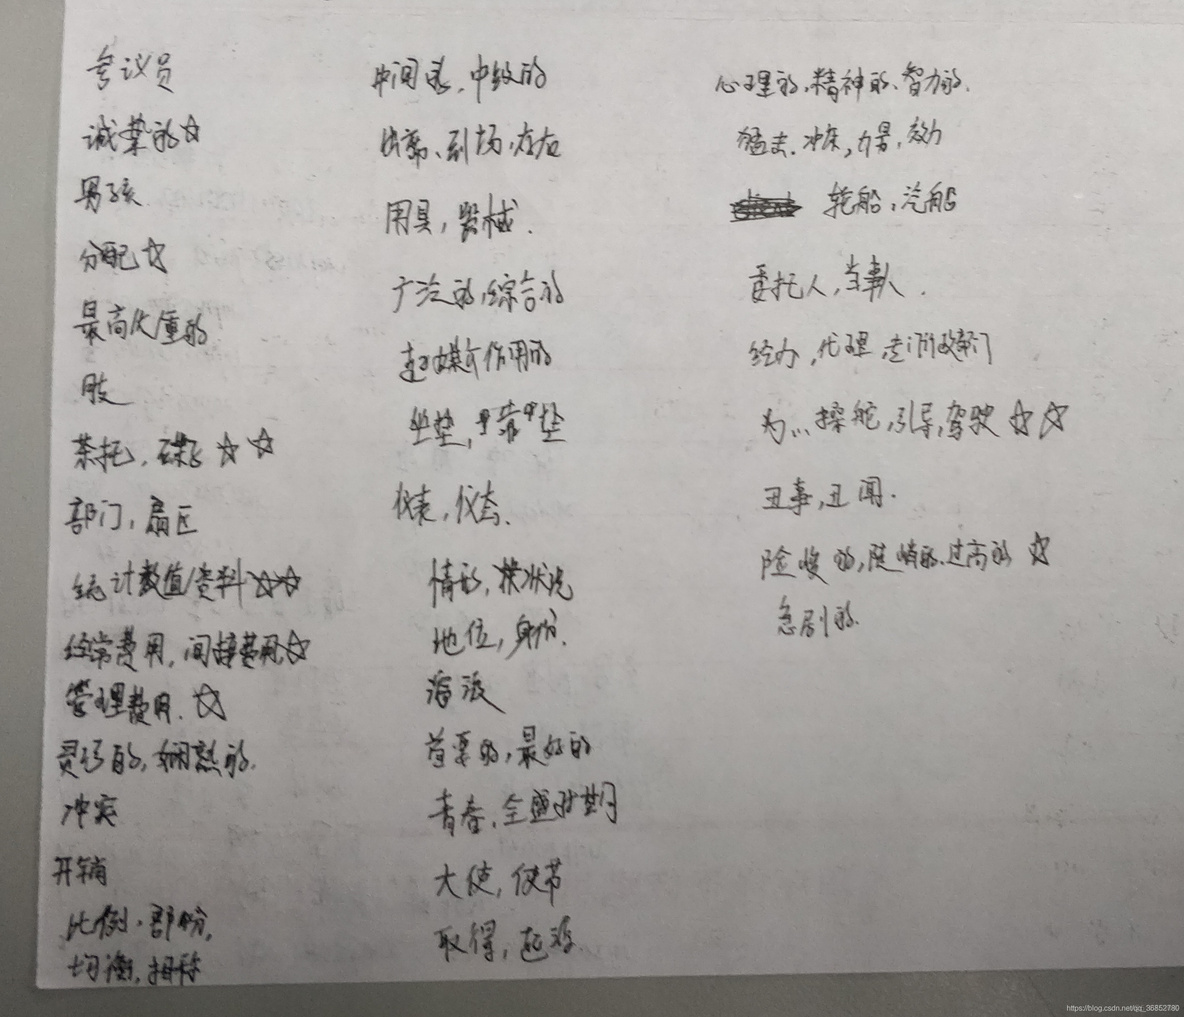 参议员
诚挚的☆
男孩
分配☆
最高优重的
肢
茶托，碟 ☆ ☆
部门，扇区
统计数值/资料☆☆
经常费用，间接费用☆
管理费用．☆
灵巧的，娴熟的．
冲突
开销
比例、部份，
均衡，相称
中间的．中级的
出席、到场，存在
用具，器械．
广泛的，综合的
起媒介作用的
坐垫，靠垫
仪表，仪态．
情形，状况
地位，身份．
首要的，最好的
青春，全盛时期
大使，使节
取得，起
心理的，精神的、智力的．
猛击．冲床，力量，效力
轮船，汽船
委托人，当事人．
经办，代理，专门政府部门
为…操舵，引导，驾驶 ☆ ☆
丑事，丑闻．
险峻的，陡峭的．过高的 ☆
急剧的．
https://blog.csdn.net/qq_36852780